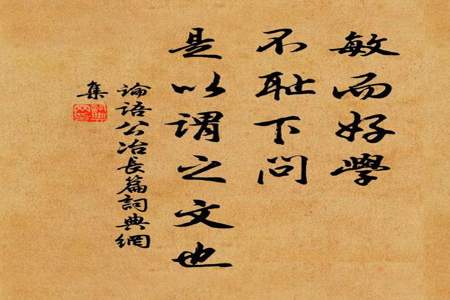 敏而好學
不耻下問
是以謂之文也
論語公冶長篇詞典網
集